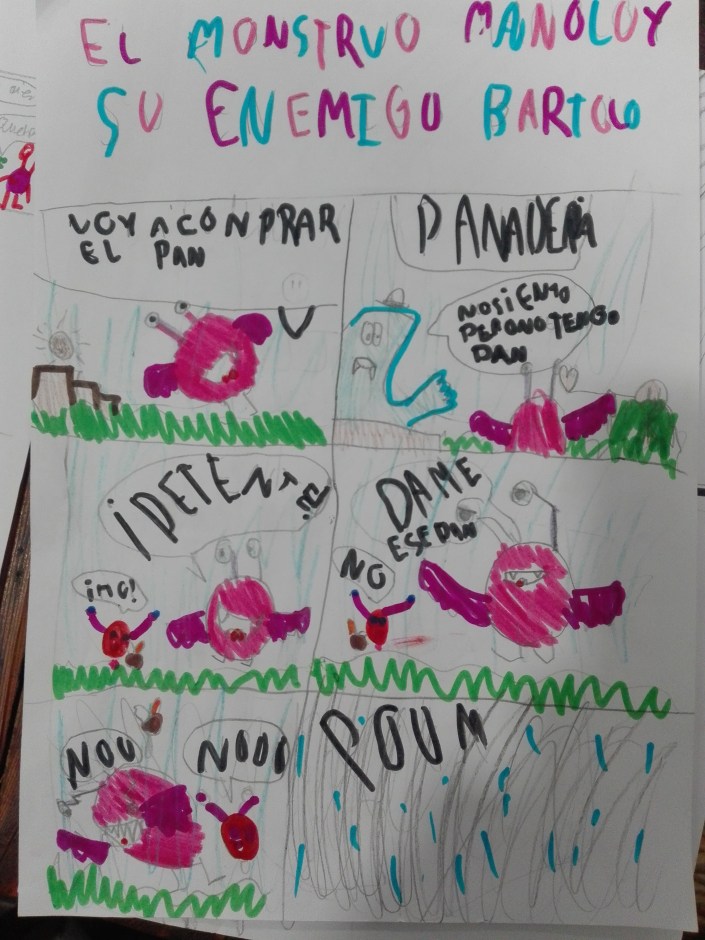 EL MONSTRUO MANOLO Y
SU ENEMIGO BARTOLO
VOY A CONPRAR
EL PAN
PANADERIA
NO SIENTO
PERO NO TENGO
PAN
¡DETENTE!
¡NO!
DAME
ESE PAN
NO
NOO
NOOO
POUM